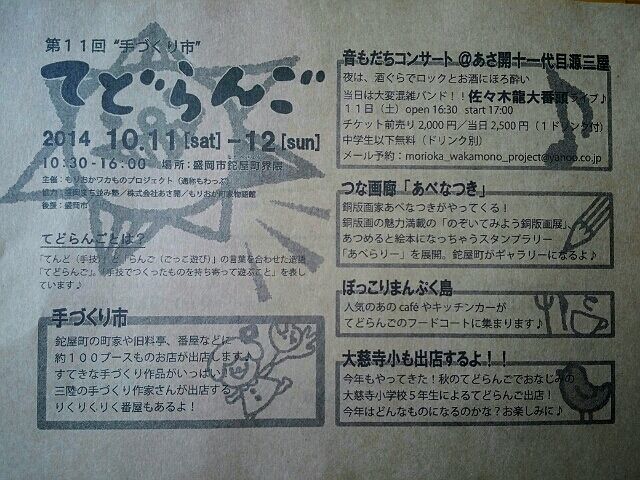 第11回 "手づくり市"
てどらんご
2014 10.11[sat]-12[sun]
10:30-16:00 場所:盛岡市鉈屋町界隈
主催:もりおかワカものプロジェクト(通称もわっぷ)
協力:盛岡まち並み塾/株式会社あさ開/もりおか町家物語館
後援:盛岡市
てどらんごとは?
「てんど(手技)」と「らんご(ごっこ遊び)」の言葉を合わせた造語
『てどらんご』。「手技でつくったものを持ち寄って遊ぶこと」を表し
ています♪
手づくり市
鉈屋町の町家や旧料亭、番屋などに
約100ブースものお店が出店します♪
すてきな手づくり作品がいっぱい!
三陸の手づくり作家さんが出店する
りくりくりく番屋もあるよ!
音もだちコンサート @あさ開十一代目源三屋
夜は、酒ぐらでロックとお酒にほろ酔い
当日は大変混雑バンド!!佐々木龍大番頭ライブ♪
11日(土)open 16:30 start 17:00
チケット前売り 2,000円/当日 2,500円(1ドリンク付)
中学生以下無料(ドリンク別)
メール予約:morioka_wakamono_project@yahoo.co.jp
つな画廊「あべなつき」
銅版画家あべなつきがやってくる!
銅版画の魅力満載の「のぞいてみよう銅版画展」、
あつめると絵本になっちゃうスタンプラリー
「あべらりー」を展開。鉈屋町がギャラリーになるよ♪
ほっこりまんぷく島
人気のあの caféやキッチンカーが
てどらんごのフードコートに集まります♪
大慈寺小も出店するよ!!
今年もやってきた!秋のてどらんごでおなじみの
大慈寺小学校5年生によるてどらんご出店!
今年はどんなものになるのかな?お楽しみに♪